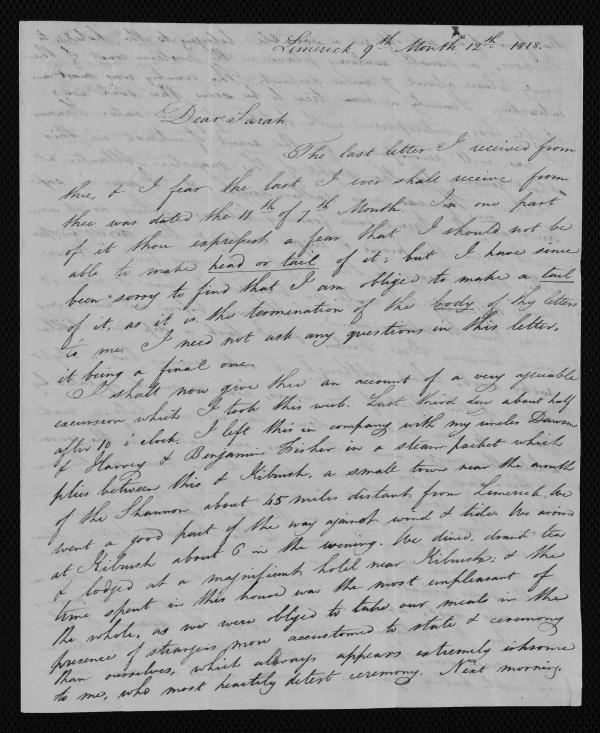 Limerick 9th Month 12th 1818.
Dear Sarah
The last letter I received from
thee, & I fear the last I ever shall receive from
thee was dated the 18th of 7th Month. In one part
of it thou expressest a fear that I should not be
able to make head or tail of it; but I have since
been sorry to find that I am obliged to make a tail
of it, as it is the termination of the body of thy letters
to me. I need not ask any questions in this letter,
it being a final one.
I shall now give thee an account of a very agreeable
excursion which I took this week. Last third day about half
after 10 o'clock, I left this in company with my uncles Dawson
& Harvey & Benjamin Fisher in a steam packet which
plies between this & Kilrush, a small town near the mouth
of the Shannon about 45 miles distant from Limerick. We
went a good part of the way against wind & tide. We arrived
at Kilrush about 6 in the evening. We dined, drank tea
& lodged at a magnificent hotel near Kilrush; & the
time spent in this house was the most unpleasant of
the whole, as we were obliged to take our meals in the
presence of strangers more accustomed to state & ceremony
than ourselves, which always appears extremely irksome
to me, who most heartily detest ceremony. Next morning,